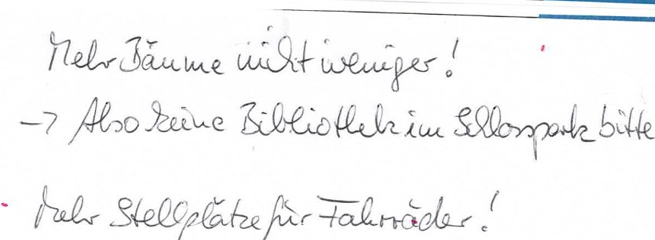 Mehr Bäume nicht weniger!
-> Also keine Bibliothek im Schlosspark bitte
Mehr Stellplätze für Fahrräder!